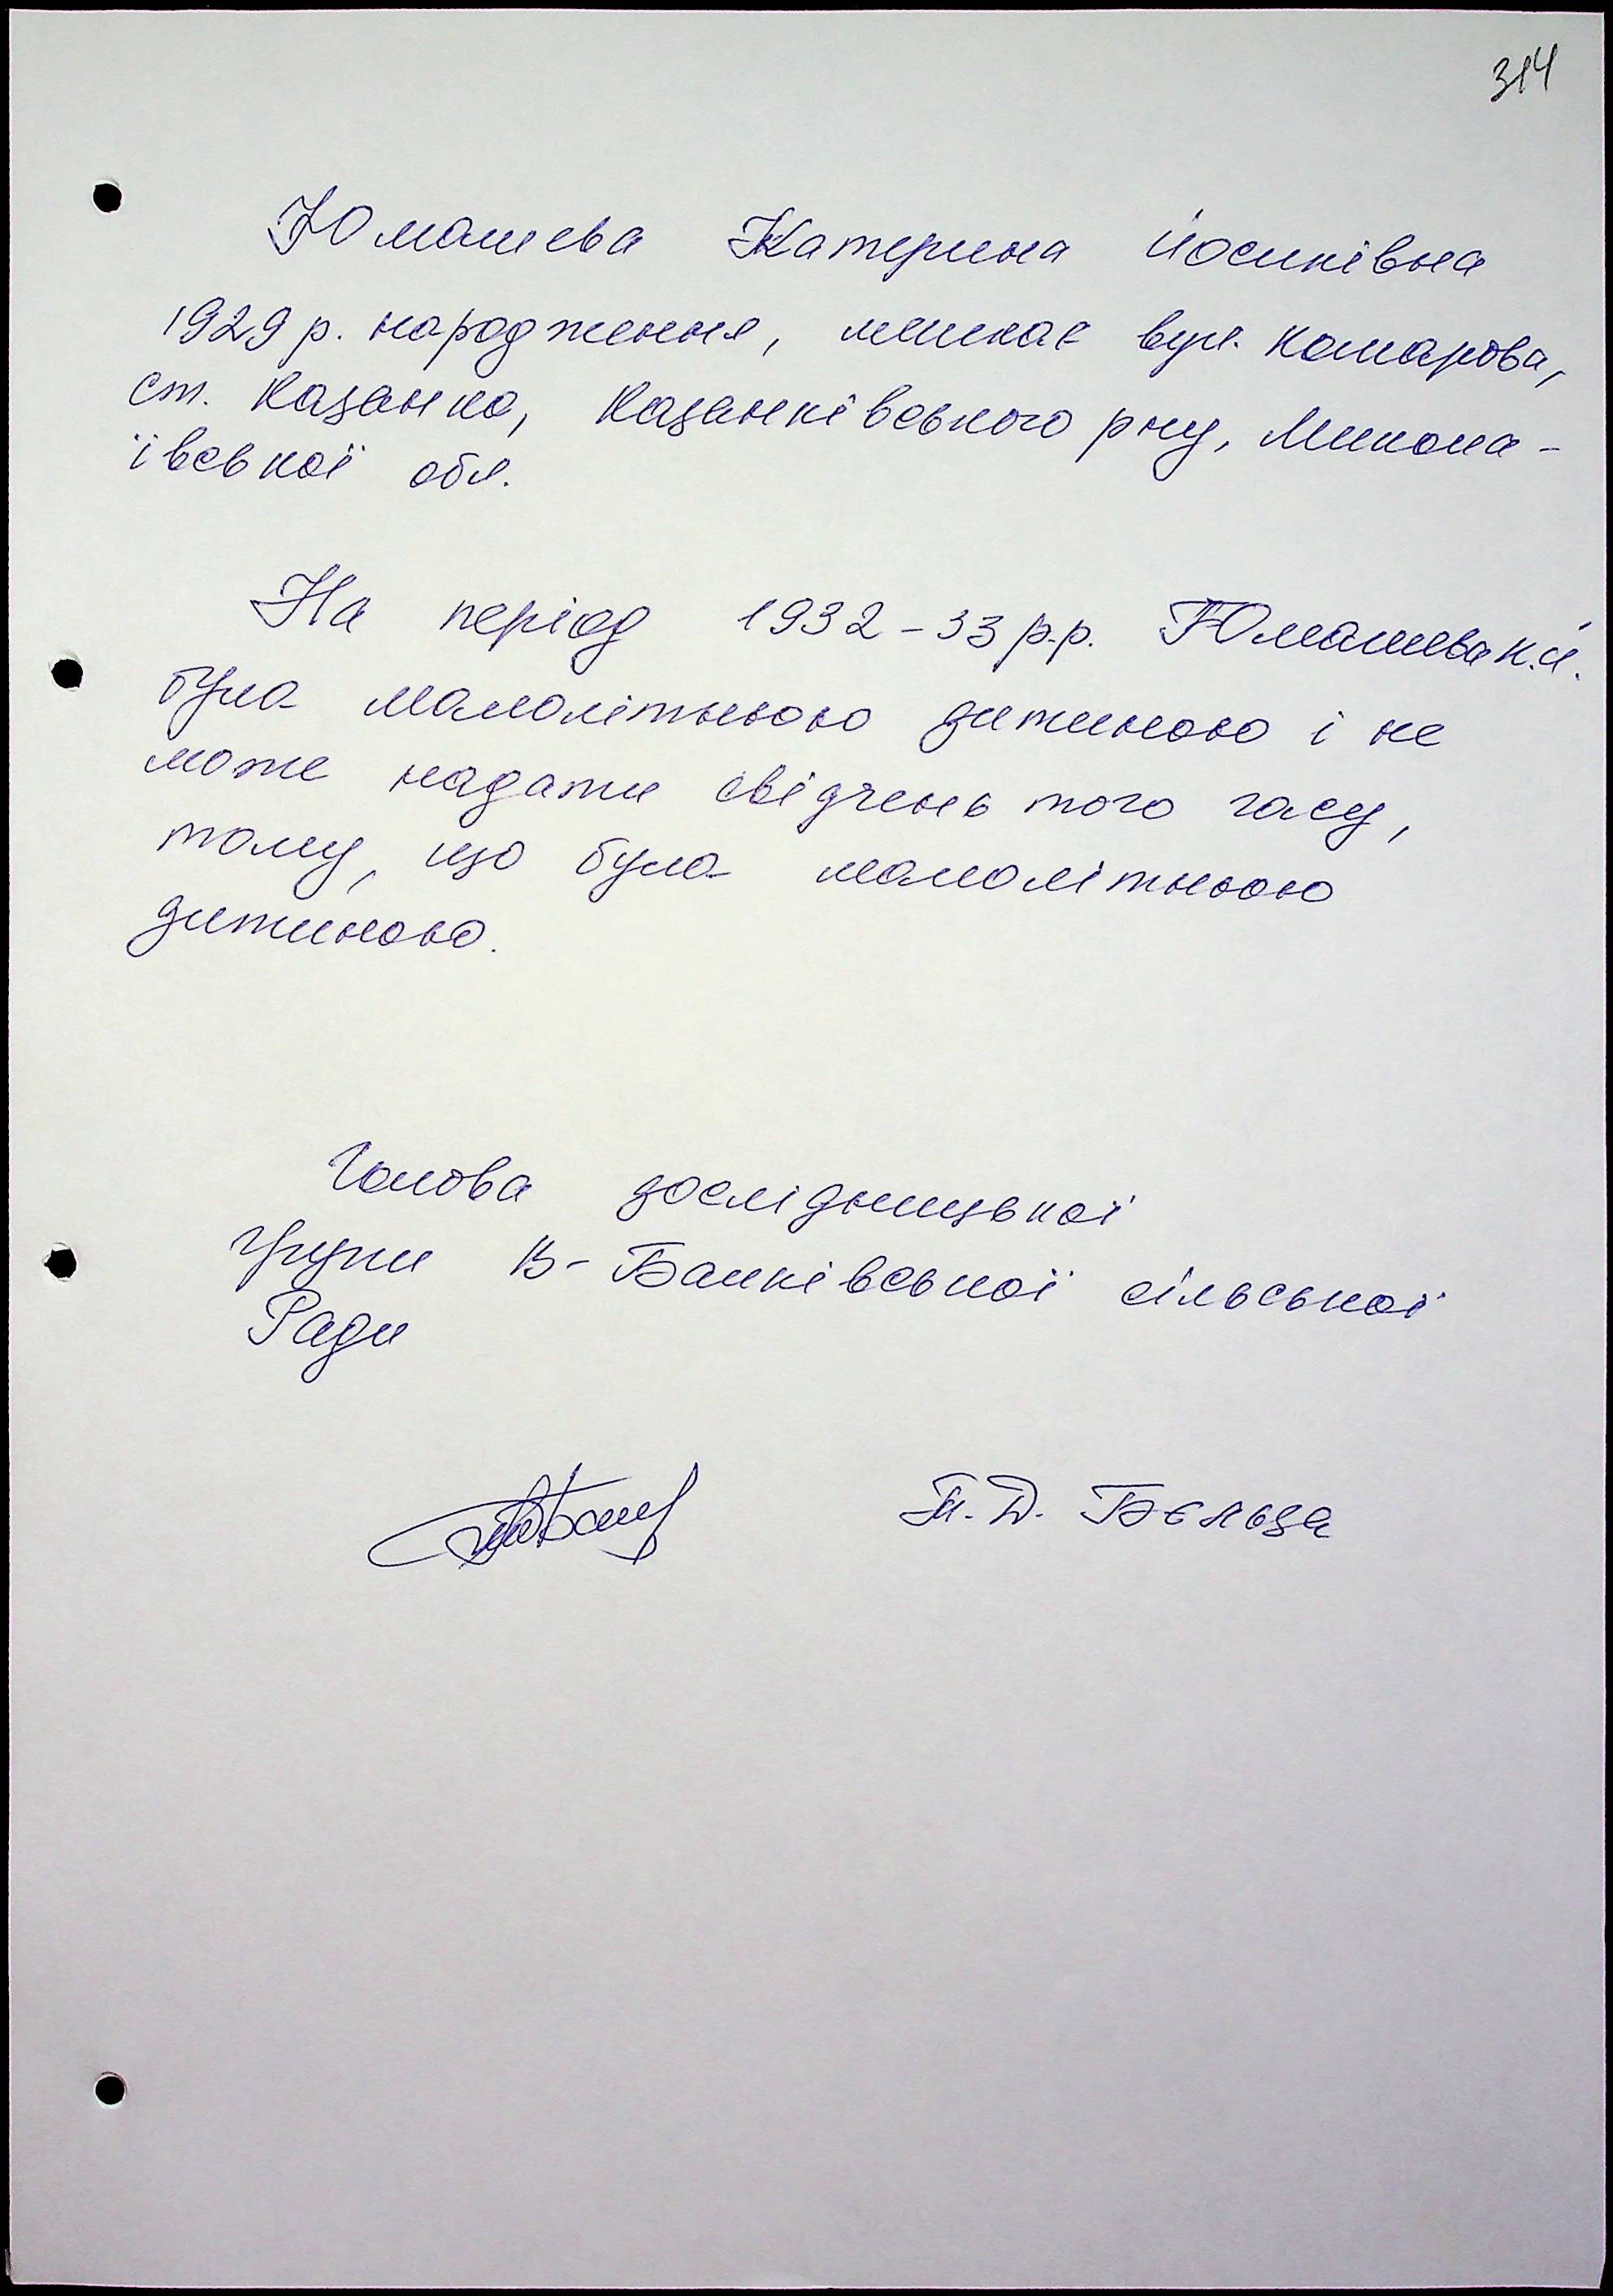 314
Юмашева Катерина Йосипівна
1929 р. народження, мешкає вул. Комарова,
ст. Казанка, Казанківського рну, Микола-
ївської обл.
На період 1932-33 р.р. Юмашева К.Й.
була малолітньою дитиною і не
може надати свідчень того часу,
тому, що була малолітньою
дитиною.
Голова дослідницької
групи В-Балківської сільської
Ради
Т. Д. Бєльза